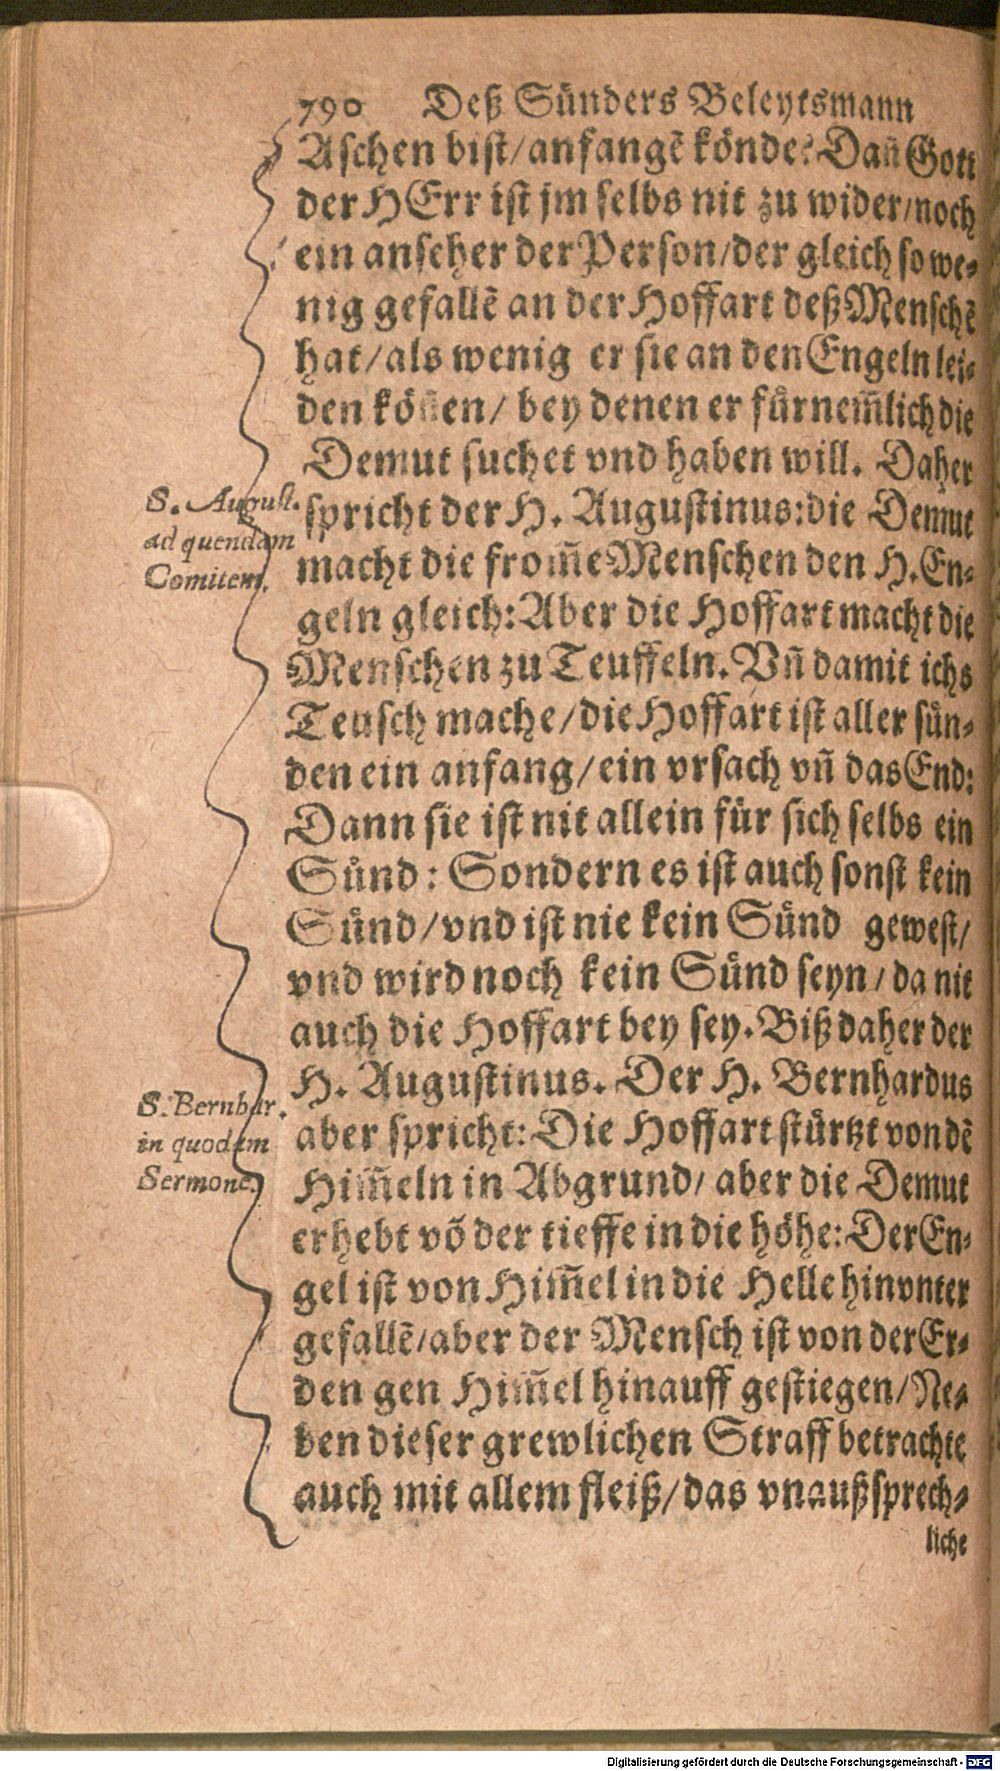 790 Deß Sünders Beleytsmann
Aschen bist/anfangē könde? Dañ Gott
der HErr ist jm selbs nit zu wider/noch
ein anseher der Person/der gleich so we-
nig gefallē an der Hoffart deß Menschē
hat/als wenig er sie an den Engeln lei-
den köñen/ bey denen er fürnem̃lich die
Demut suchet vnd haben will. Daher
S. August.
ad quendam
Comitem.
spricht der H. Augustinus: die Demut
macht die from̃e Menschen den H. En-
geln gleich: Aber die Hoffart macht die
Menschen zu Teuffeln. Vñ damit ichs
Teusch mache/die Hoffart ist aller sün-
den ein anfang/ein vrsach vñ das End:
Dann sie ist nit allein für sich selbs ein
Sünd: Sondern es ist auch sonst kein
Sünd/vnd ist nie kein Sünd gewest/
vnd wird noch kein Sünd seyn/da nit
auch die Hoffart bey sey. Biß daher der
H. Augustinus. Der H. Bernhardus
S. Bernhar.
in quodam
Sermone,
aber spricht: Die Hoffart stürtzt von dē
Him̃eln in Abgrund/ aber die Demut
erhebt võ der tieffe in die höhe: Der En-
gel ist von Him̃el in die Helle hinvnter
gefallē/aber der Mensch ist von der Er-
den gen Him̃el hinauff gestiegen/Ne-
ben dieser grewlichen Straff betrachte
auch mit allem fleiß/das vnaußsprech-
liche
Digitalisierung gefördert durch die Deutsche Forschungsgemeinschaft - DFG